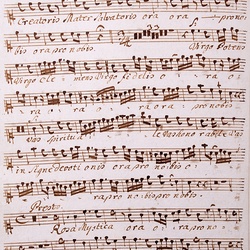 Creatoris Mater Salvatoris ora ora prono
bis ora pro nobis Virgo Poten
Virgo Cle mens Virgo fidelis o ra
ra o ra ora pro nobis
Vas spiritua le
in signe devoti onis ora pro nobis o
ra pro nobis pro nobis
Presto
Rosa Mystica ora o ra pro no